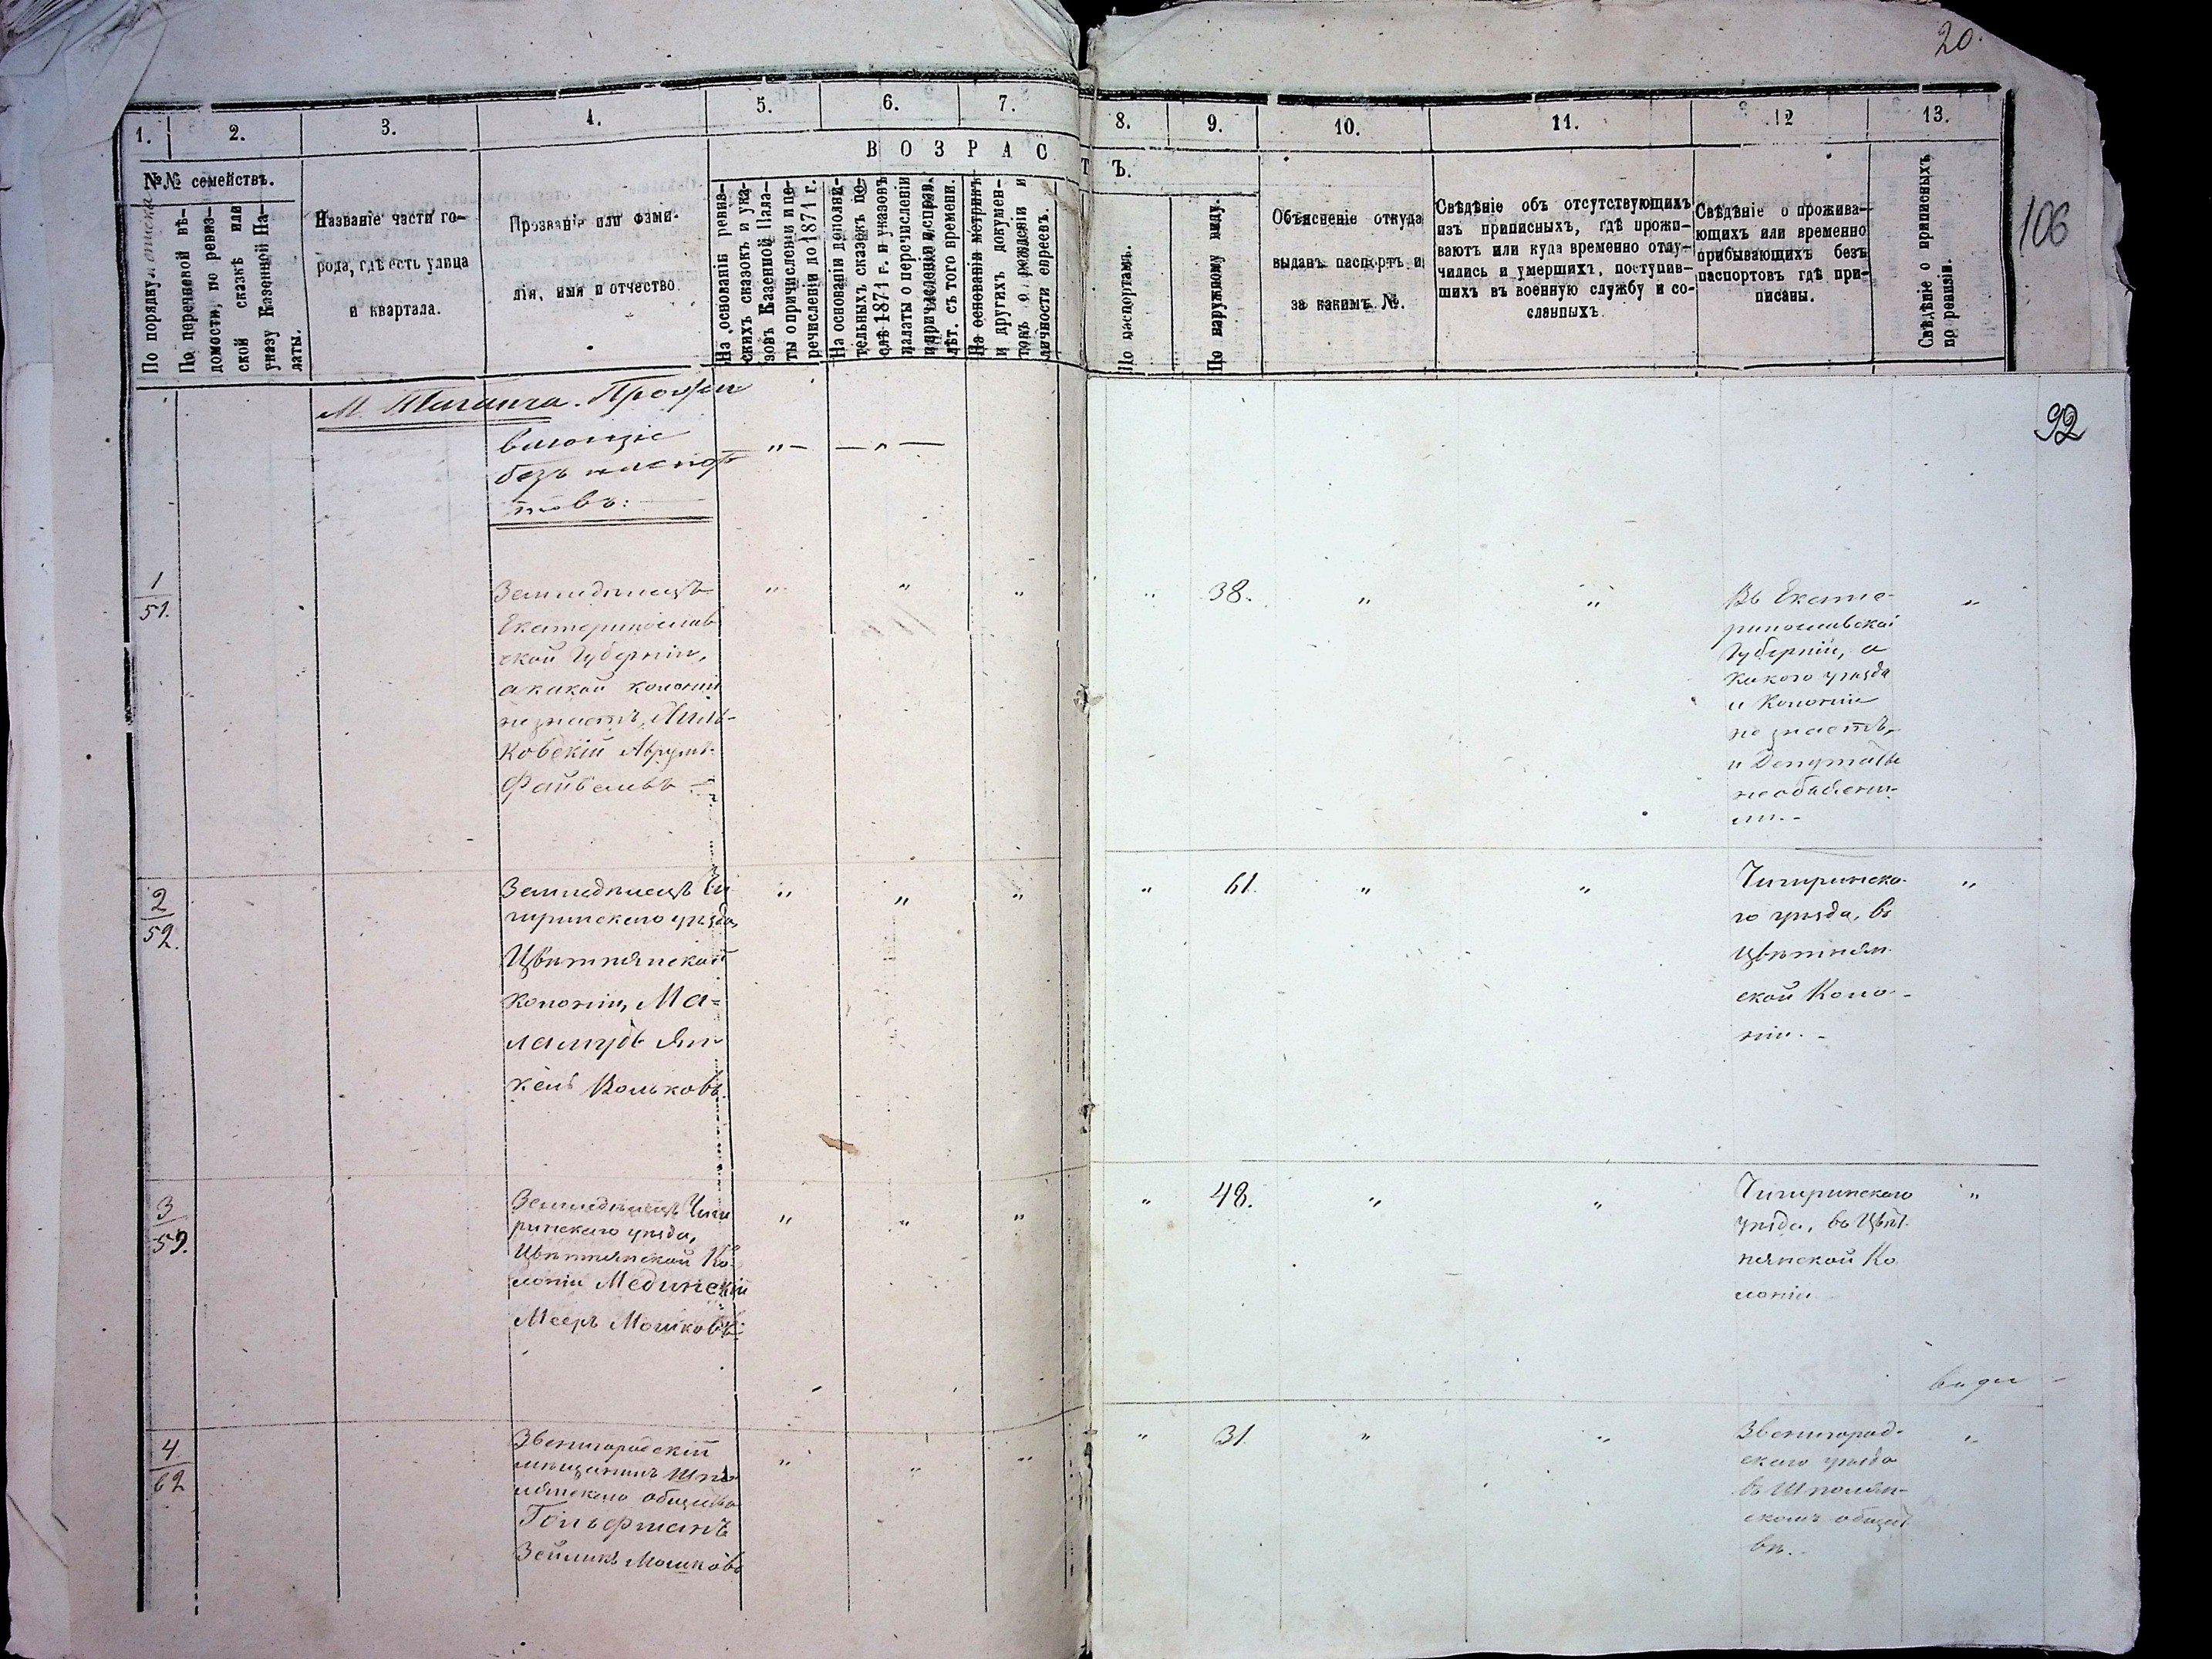 20.
106
92
1.
2.
3.
4.
5.
6.
7.
8.
9.
10.
11.
12
13.
ВОЗРАСТЪ.
№№ семействъ.
По порядку
По перечневой вѣ-
домости, по ревиз-
ской сказкѣ или
указу Казенной Па-
латы.
Названіе части го-
рода, гдѣ есть улица
и квартала.
Прозваніе или фами-
лія, имя и отчество.
На основаніи ревиз-
скихъ сказокъ и ука-
зовъ Казенной Пала-
ты о причисленіи и пе-
речисленіи до 1871 г.
На основаніи дополни-
тельныхъ сказокъ по-
слѣ 1871 г. и указовъ
палаты о перечисленіи
и причисленіи и справ.
лѣт. съ того времени.
На основаніи метрикъ
и другихъ докумен-
товъ о рожденіи и
личности евреевъ.
По паспортамъ.
По наружному виду.
Объясненіе откуда
выданъ паспортъ и
за какимъ №.
Свѣдѣніе объ отсутствующихъ
изъ приписныхъ, гдѣ прожи-
ваютъ или куда временно отлу-
чились и умершихъ, поступив-
шихъ въ военную службу и со-
сланныхъ.
Свѣдѣніе о прожива-
ющихъ или временно
прибывающихъ безъ
паспортовъ гдѣ при-
писаны.
Свѣдѣніе о приписныхъ
по ревизіи.
М. Таганча. Прожи
вающіе
безъ паспор
товъ:
— " — — " —
1
51.
Земледѣлецъ
Екатеринослав
ской Губерніи,
а какой колоніи
не знаетъ,
ковскій Аврумъ
Файвелевъ
" " " " 38. " "
Въ Екате-
ринославской
Губерніи, а
какого уѣзда
и Колоніи
не знаетъ,
и Депутаты
не объясни-
ли. -
"
2
52.
Земледѣлецъ Чи
гиринскаго уѣзда,
Цвѣтнянской
Колоніи, Ма-
ламудъ Ян
кель Вольковъ.
" " " " 61. " "
Чигиринска-
го уѣзда, въ
Цвѣтнян
ской Коло-
ніи. -
"
3
59.
Земледѣлецъ Чиги
ринскаго уѣзда,
Цвѣтнянской Ко-
лоніи Мединскій
Мееръ Мошковъ
" " " " 48. " "
Чигиринскаго
уѣзда, въ Цвѣт
нянской Ко
лоніи
"
4
62
Звенигородскій
мѣщанинъ Шпо
лянскаго общества
Гольфманъ
Зейликъ Мошковъ
" " " " 31. " "
Звенигород-
скаго уѣзда
въ Шполян-
скомъ общест
вѣ. -
"